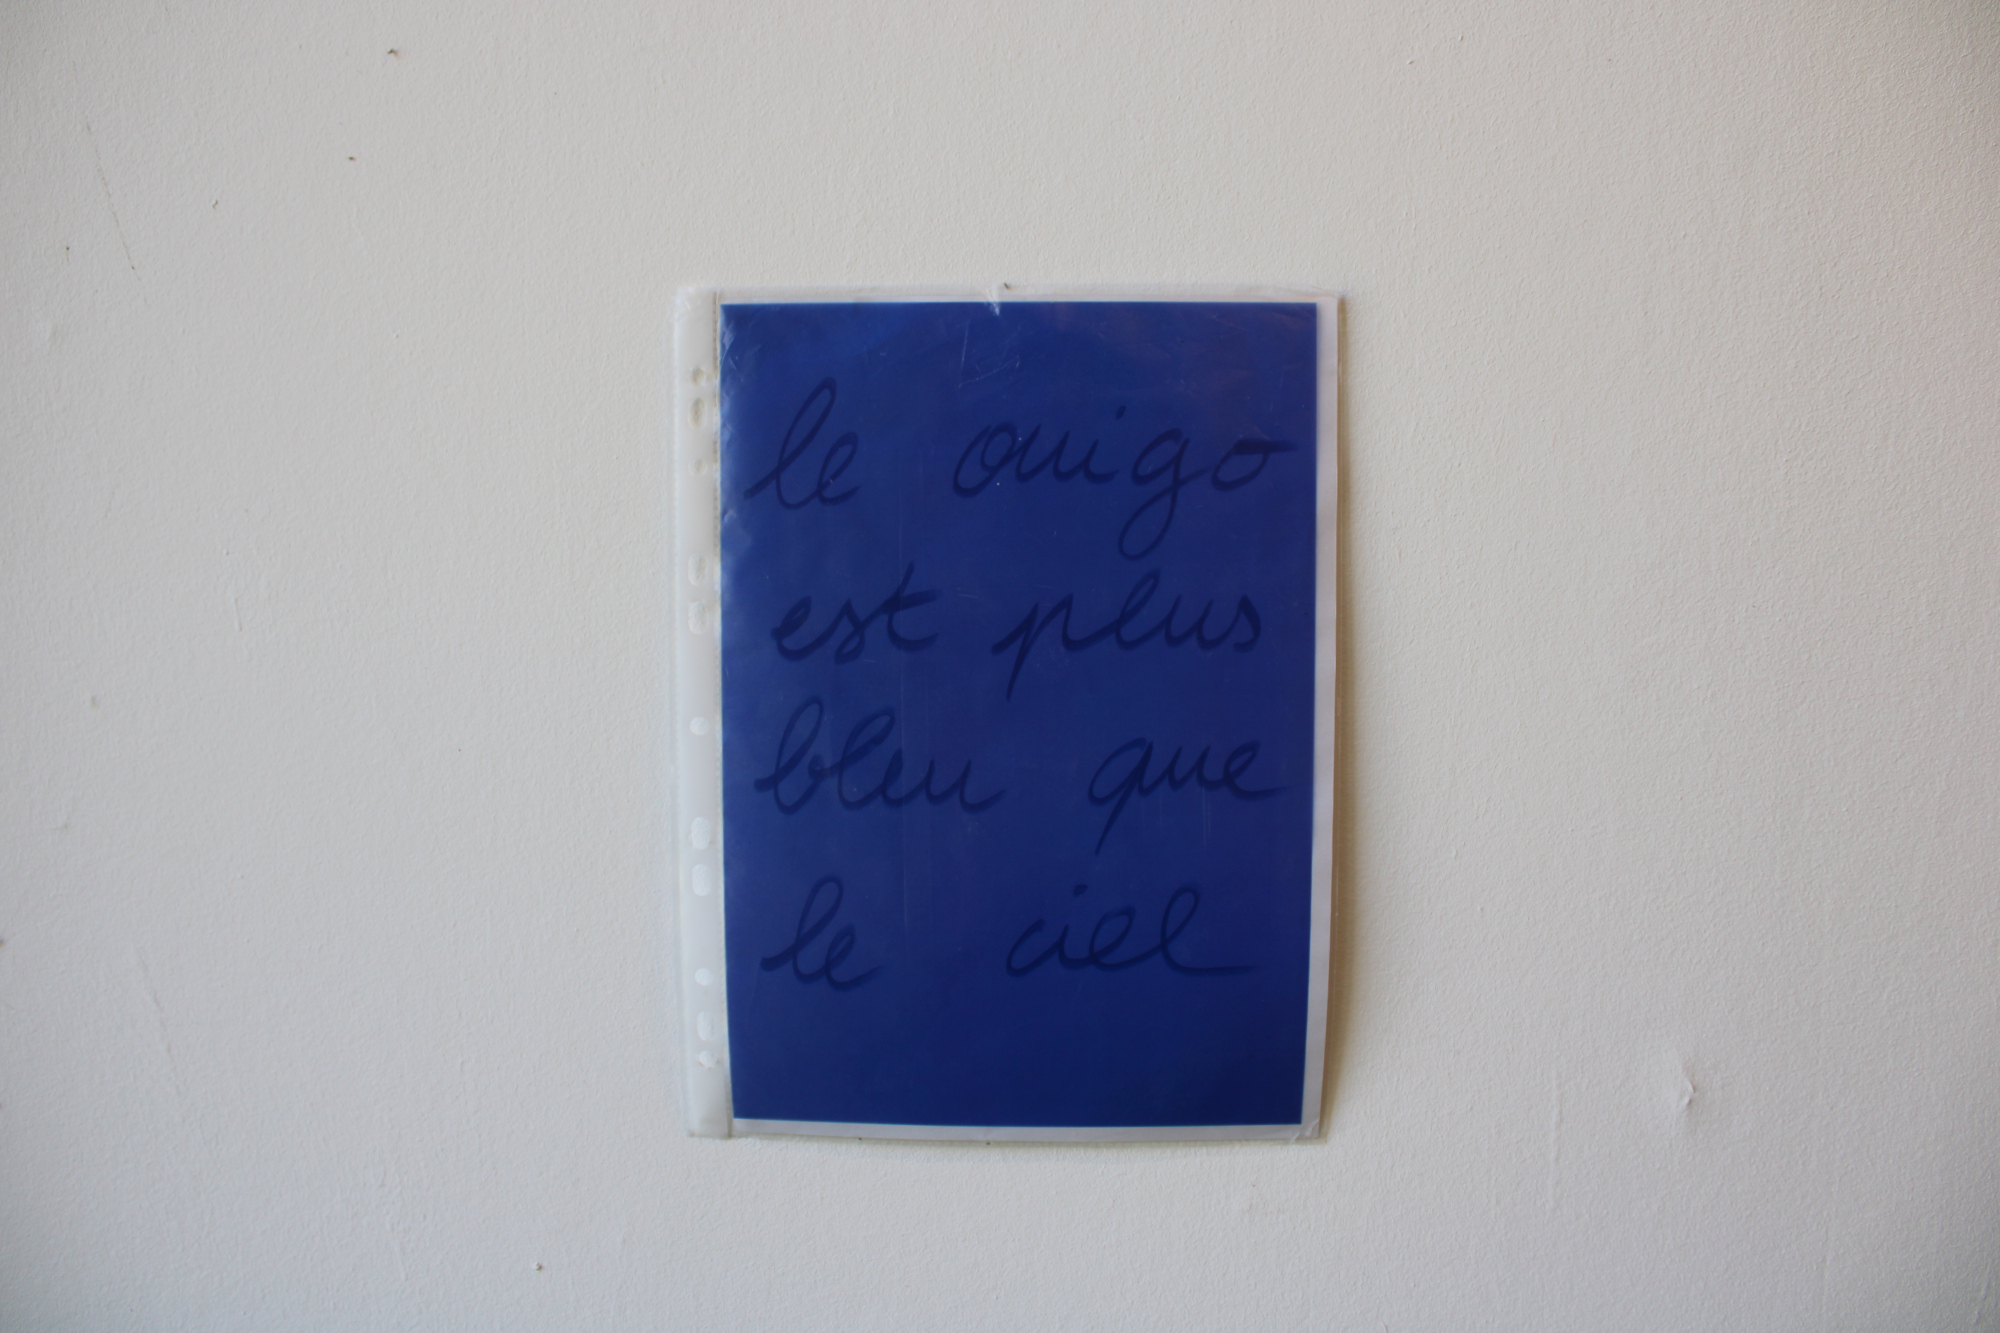 le ouigo
est plus
bleu que
le ciel